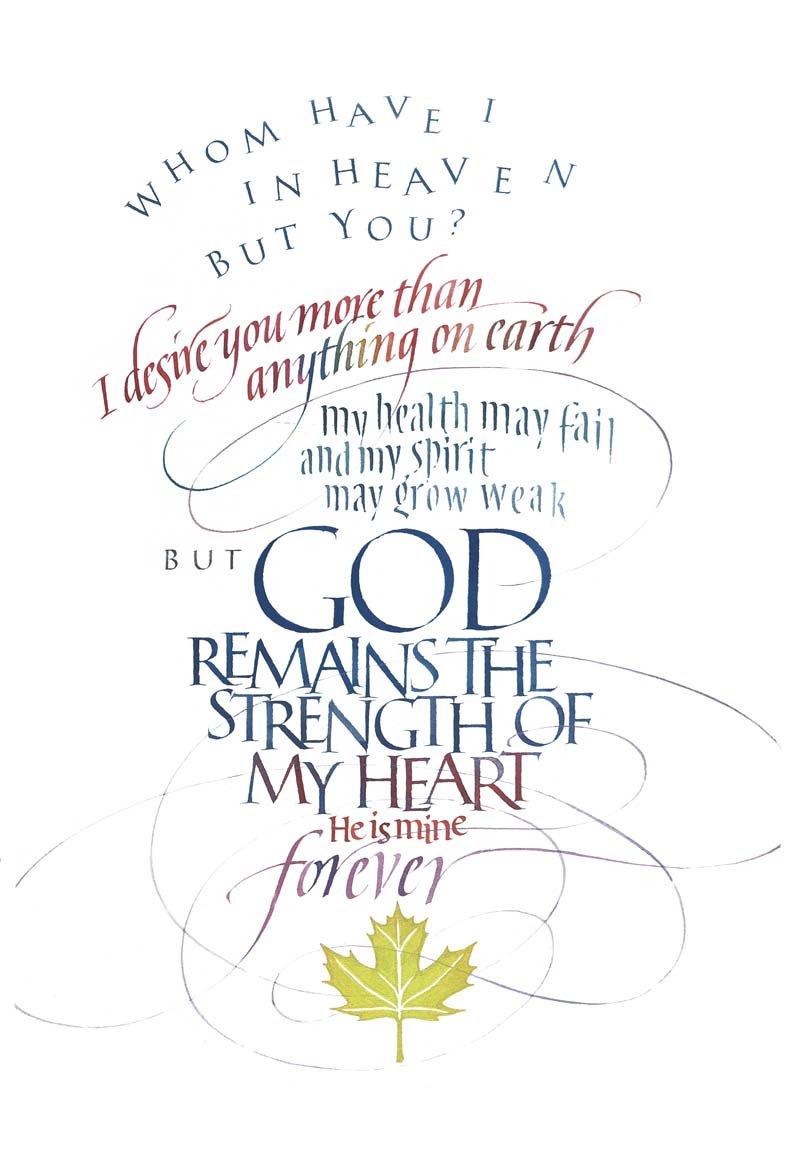 WHOM HAVE I
IN HEAVEN
BUT YOU?
I desire you more than
anything on earth
my health may fail
and my spirit
may grow weak
BUT GOD
REMAINS THE
STRENGTH OF
MY HEART
He is mine
forever